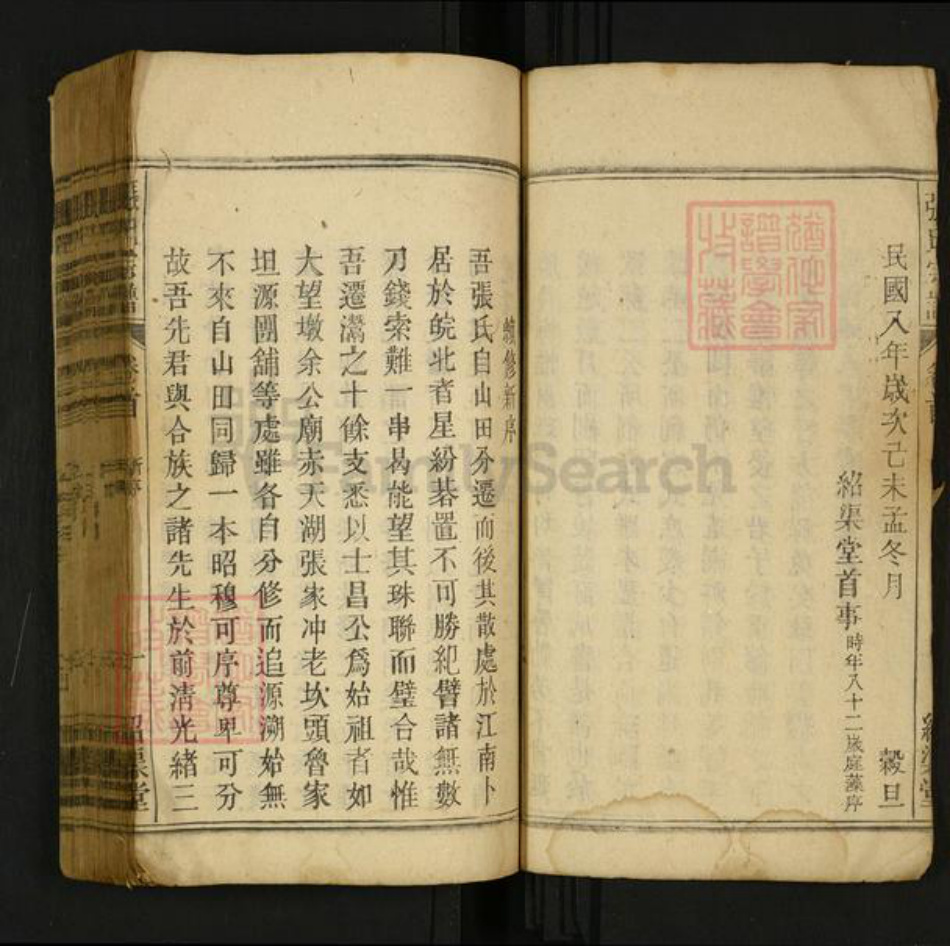 民國八年歲次己未孟冬月 穀旦
紹渠堂首事時年八十二歲庭藻序
續修新序
吾張氏自山田分遷而後其散處於江南卜
居於皖北者星紛碁置不可勝紀譬諸無數
刀錢索難一串曷能望其珠聯而璧合哉惟
吾遷灊之十餘支悉以士昌公爲始祖者如
大望墩余公廟赤天湖張家冲老坎頭魯家
坦源團舖等處雖各自分修而追源溯始無
不來自山田同歸一本昭穆可序尊卑可分
故吾先君與合族之諸先生於前淸光緒三
新序
一
紹渠堂
FamilySearch